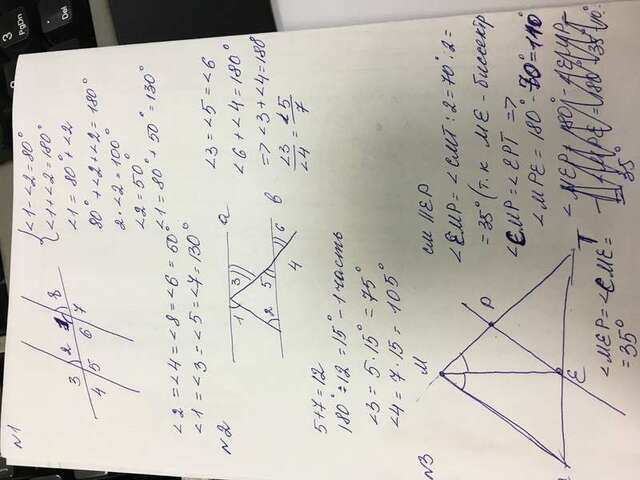 N1
∠1-∠2=80°
∠1+∠2=180°
∠1=80°+∠2
80°+∠2+∠2=180°
2·∠2=100°
∠2=50°
∠1=80°+50°=130°
3 2 1 8
4 5 6 7
∠2=∠4=∠8=∠6=50°
∠1=∠3=∠5=∠7=130°
N2
a
1 3
2 5 6 в
4
∠3=∠5=∠6
∠6+∠4=180°
=>∠3+∠4=180
∠3/∠4=∠5/7
5+7=12
180°:12=15°-1 часть
∠3=5·15°=75°
∠4=7·15=105°
N3
M
P
E
T
CM||EP
∠EMP=∠CMT:2=70°:2=
=35° (т.к ME-биссектр
∠CMP=∠EPT =>
∠MPE=180°-70°=110°
∠MEP=∠CME=
=35°